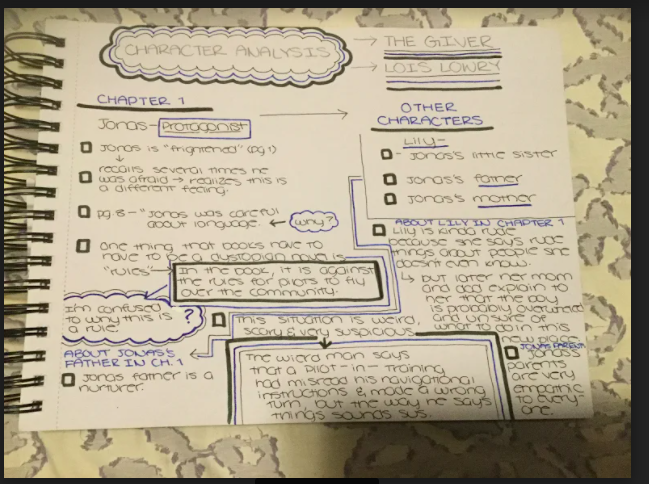 CHARACTER ANALYSIS
→ THE GIVER
→ LOIS LOWRY
CHAPTER 1
Jonas- Protagonist
Jonas is "frightened" (pg.1)
recalls several times he
was afraid → realizes this is
a different feeling.
pg.8-"Jonas was careful
about language. ← why?
One thing that books have to
have to be a dystopian novel is
"rules"
In the book, it is against
the rules for pilots to fly
over the community.
I'm confused
to why this is
a rule. ?
This situation is weird,
scary & very suspicious
ABOUT JONAS'S
FATHER IN CH. 1
Jonas father is a
nurturer.
The wierd man says
that a Pilot-in-Training
had misread his navigational
instructions & made a wrong
turn, but the way he says
things sounds sus.
OTHER
CHARACTERS
Lily-
- Jonas's little sister
Jonas's father
Jonas's mother
ABOUT LILY IN CHAPTER 1
Lily is kinda rude
because she says rude
things about people she
doesn't even know.
↳ but after her mom
and dad explain to
her that the boy
is probably
and unsure of
what to do in this
new place
JONAS PARENT
Jonas's
parents
are very
empathic
to every-
one.